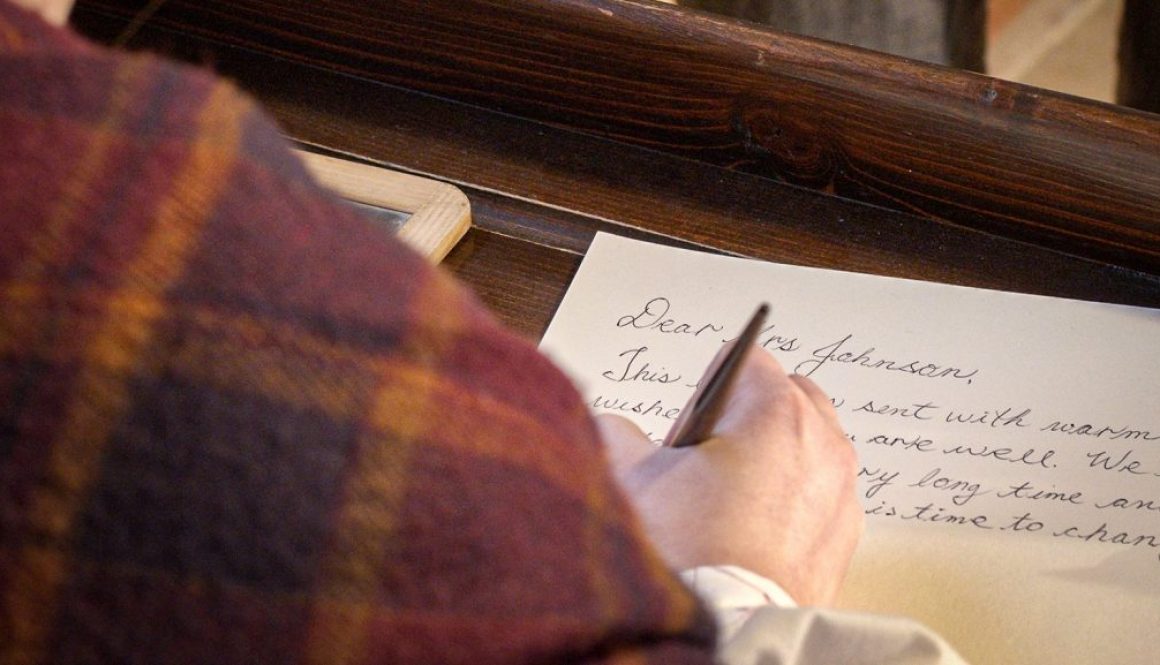 Dear Mrs Johnson,
This sent with warm
wishe are well. We
ry long time an
is time to chan